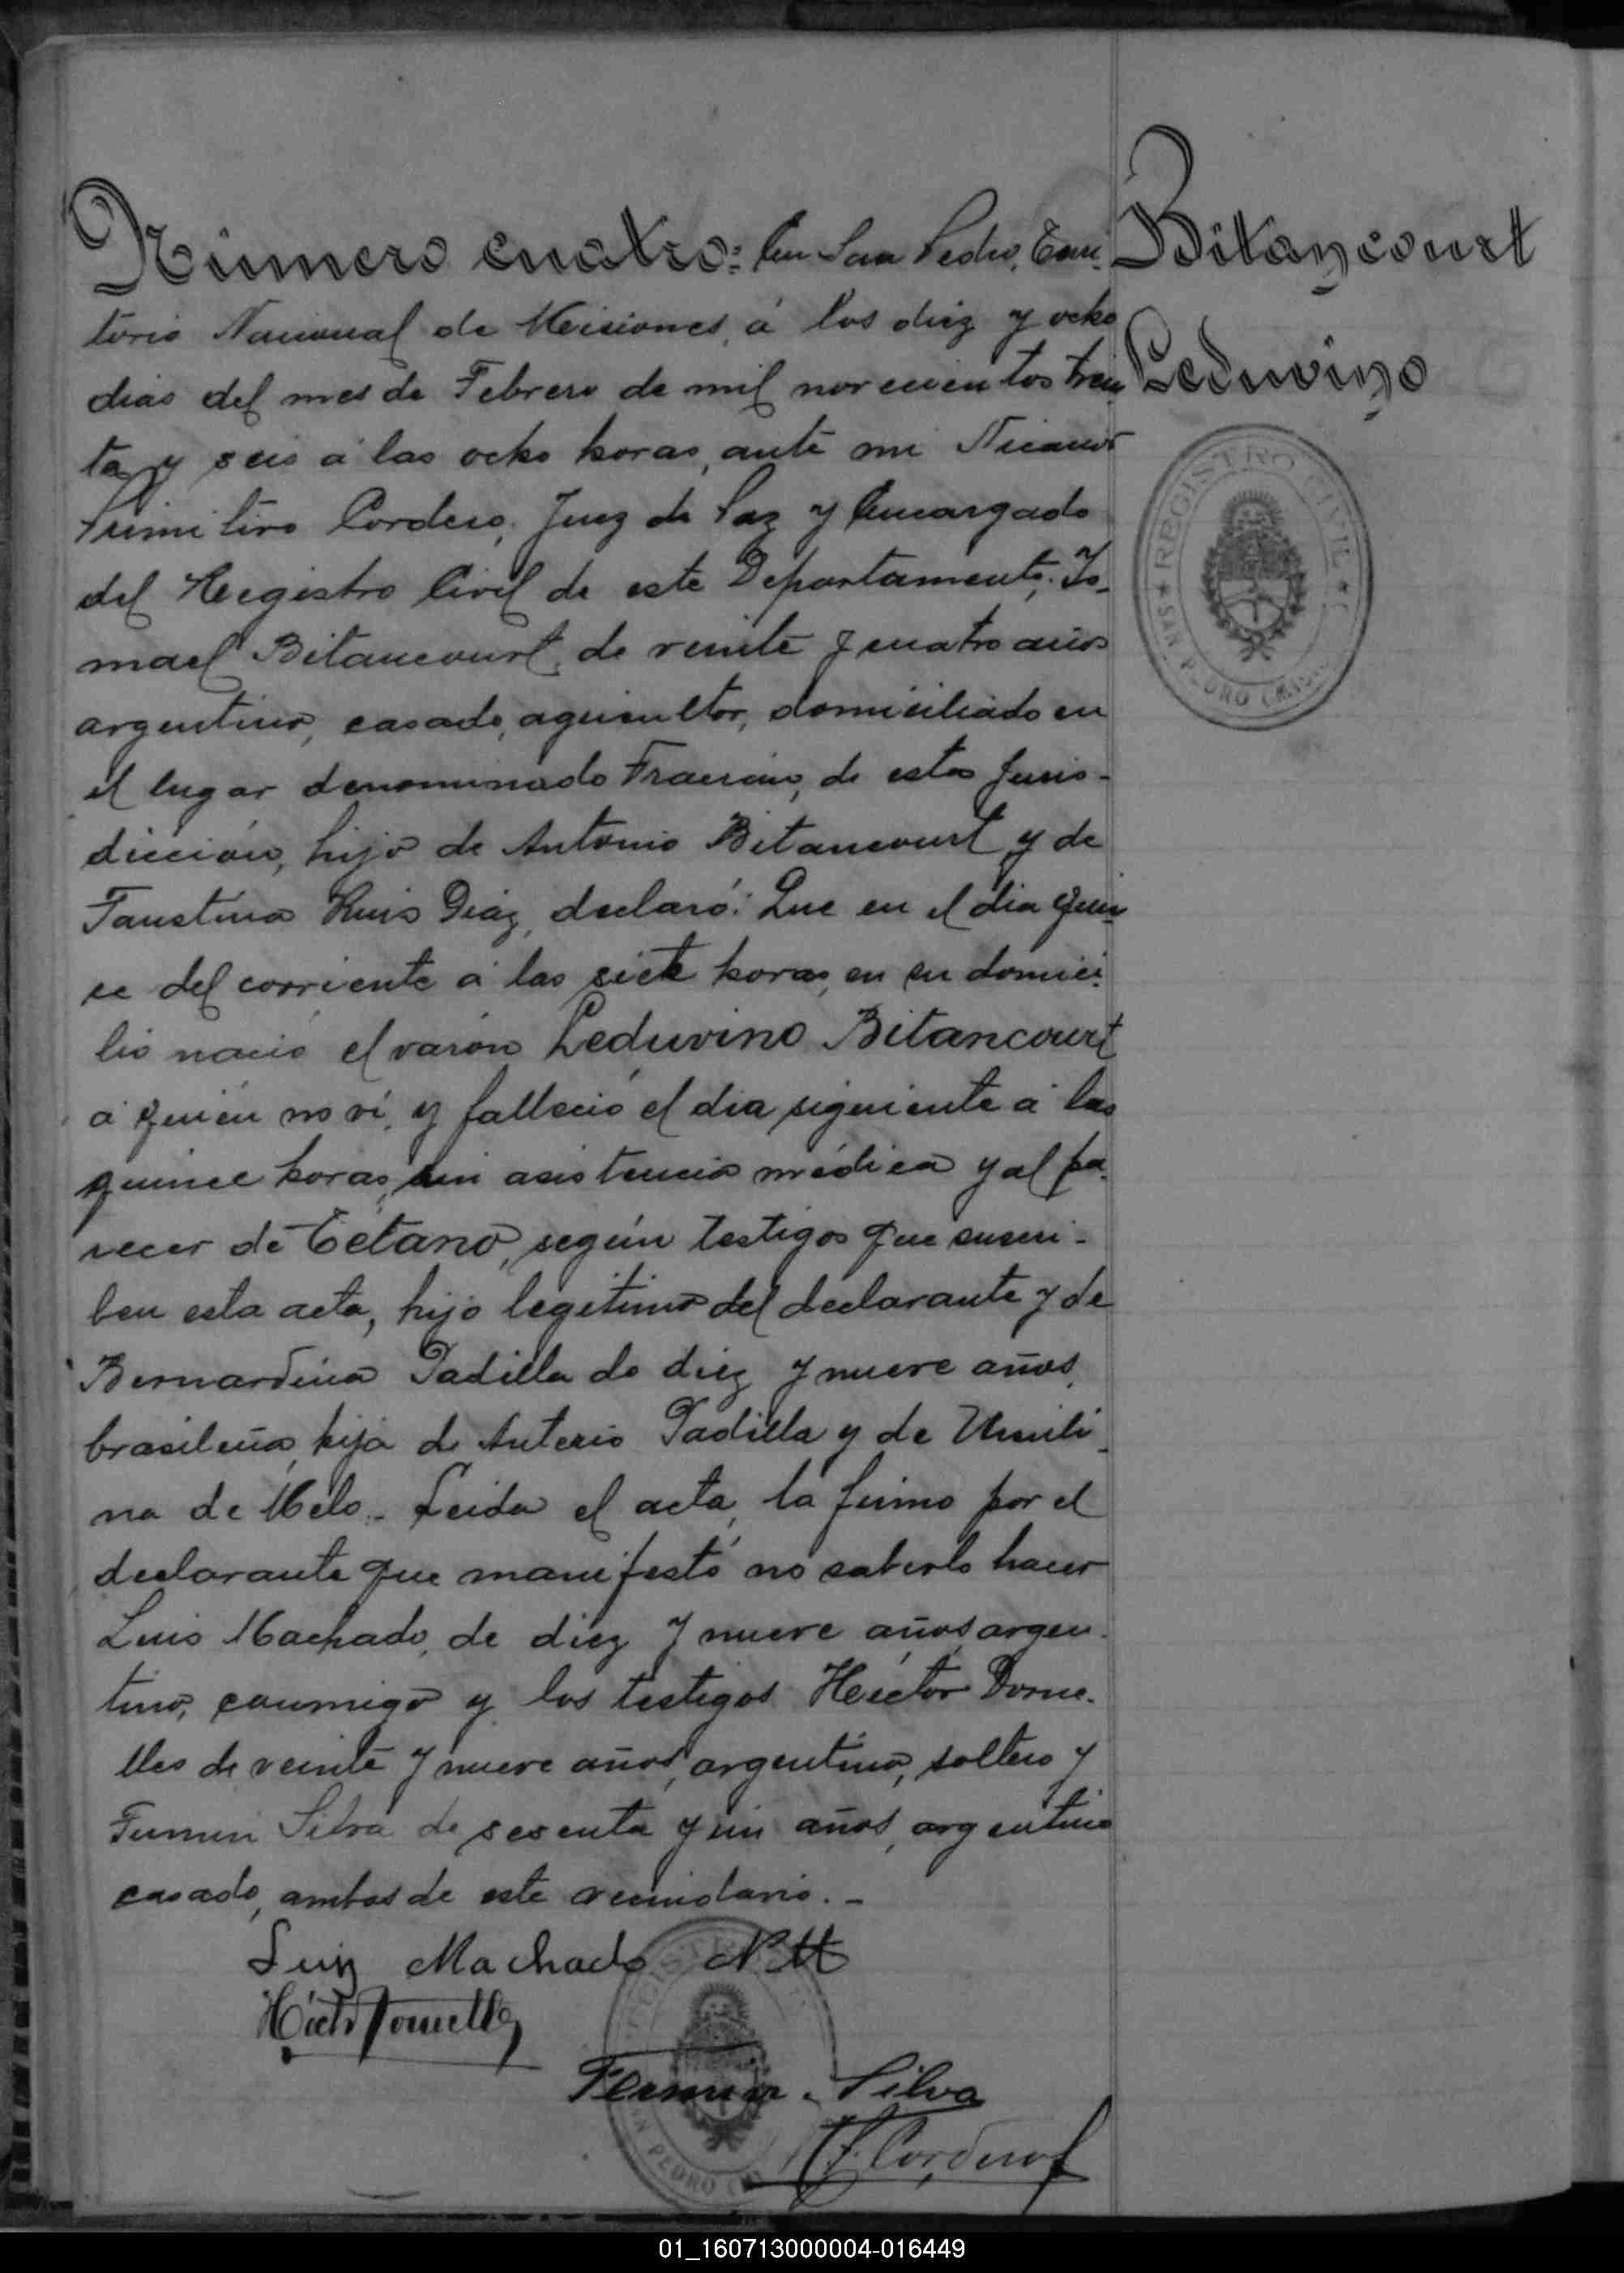 Número cuatro: En San Pedro, Terri-
torio Nacional de Misiones, á los diez y ocho
dias del mes de Febrero de mil novecientos trein
ta y seis á las ocho horas, ante mi Nicanor
Primitivo Cordero, Juez de Paz y Encargado
del Registro Civil de este Departamento, Is-
mael Bitancourt, de veinte y cuatro años
argentino, casado, agricultor, domiciliado en
el lugar denominado de esta juris-
dicción, hijo de Antonio Bitancourt y de
Faustina Luis Diaz, declaró: Que en el dia quin
ce del corriente á las siete horas, en su domici-
lio nació el varón Leduvino Bitancourt
á quién no ví, y falleció el dia siguiente á las
quince horas, sin asistencia médica y al pa-
recer de Tétano, según testigos que suscri-
ben esta acta, hijo legitimo del declarante y de
Bernardina Padilla de diez y nueve años,
brasileña, hija de Anterio Padilla y de
na de Melo.- Leida el acta, la firmo por el
declarante que manifestó no saberlo hacer
Luis Machado, de diez y nueve años, argen-
tino, conmigo y los testigos Héctor Dorne-
lles de veinte y nueve años, argentino, soltero y
Fermin Silva de sesenta y un años, argentino
casado, ambos de este vecindario.-
Luiz Machado
Héctor Dornelles
Fermin Silva
Cordero
Bitancourt
Leduvino
REGISTRO CIVIL
SAN PEDRO (MIS
SAN PEDRO (M
01_160713000004-016449